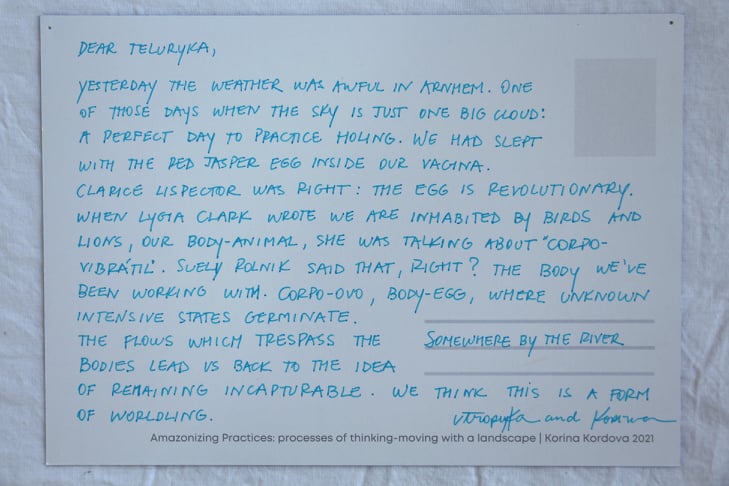 DEAR TELURYKA,
YESTERDAY THE WEATHER WAS AWFUL IN ARNHEM. ONE
OF THOSE DAYS WHEN THE SKY IS JUST ONE BIG CLOUD:
A PERFECT DAY TO PRACTICE HOLING. WE HAD SLEPT
WITH THE RED JASPER EGG INSIDE OUR VAGINA.
CLARICE LISPECTOR WAS RIGHT: THE EGG IS REVOLUTIONARY.
WHEN LYGIA CLARK WROTE WE ARE INHABITED BY BIRDS AND
LIONS, OUR BODY-ANIMAL, SHE WAS TALKING ABOUT "CORPO-
VIBRÁTIL". SUELY ROLNIK SAID THAT, RIGHT? THE BODY WE'VE
BEEN WORKING WITH. CORPO-OVO, BODY-EGG, WHERE UNKNOWN
INTENSIVE STATES GERMINATE.
THE FLOWS WHICH TRESPASS THE
BODIES LEAD US BACK TO THE IDEA
OF REMAINING INCAPTURABLE. WE THINK THIS IS A FORM
OF WORLDLING.
SOMEWHERE BY THE RIVER
and
Amazonizing Practices: processes of thinking-moving with a landscape | Korina Kordova 2021